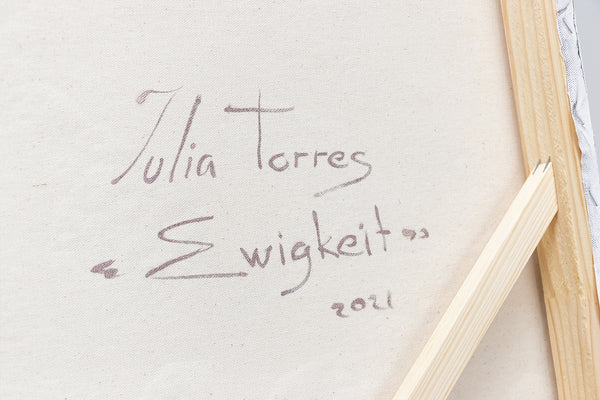 Julia Torres
"Ewigkeit"
2021